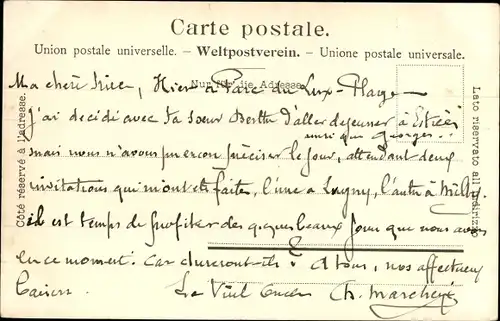 Carte postale.
Union postale universelle. – Weltpostverein. – Unione postale universale.
Nur für die Adresse.
Côté réservé à l'adresse.
Lato riservato all'indirizzo.
Ma chère Hier à Parc du Lux-
j'ai decidé avec ta soeur Berthe d'aller déjeuner à
ainsi que Georges.
mais nous n'avons pu encore préciser le jour, attendant deux
invitations qui m'ont été faites, l'une à Lagny, l'autre à Milly.
il est temps de profiter des qques beaux jours que nous avons
en ce moment. Car dureront-ils ? A tous, nos affectueux
baisers Le Vieil Oncle Ch.